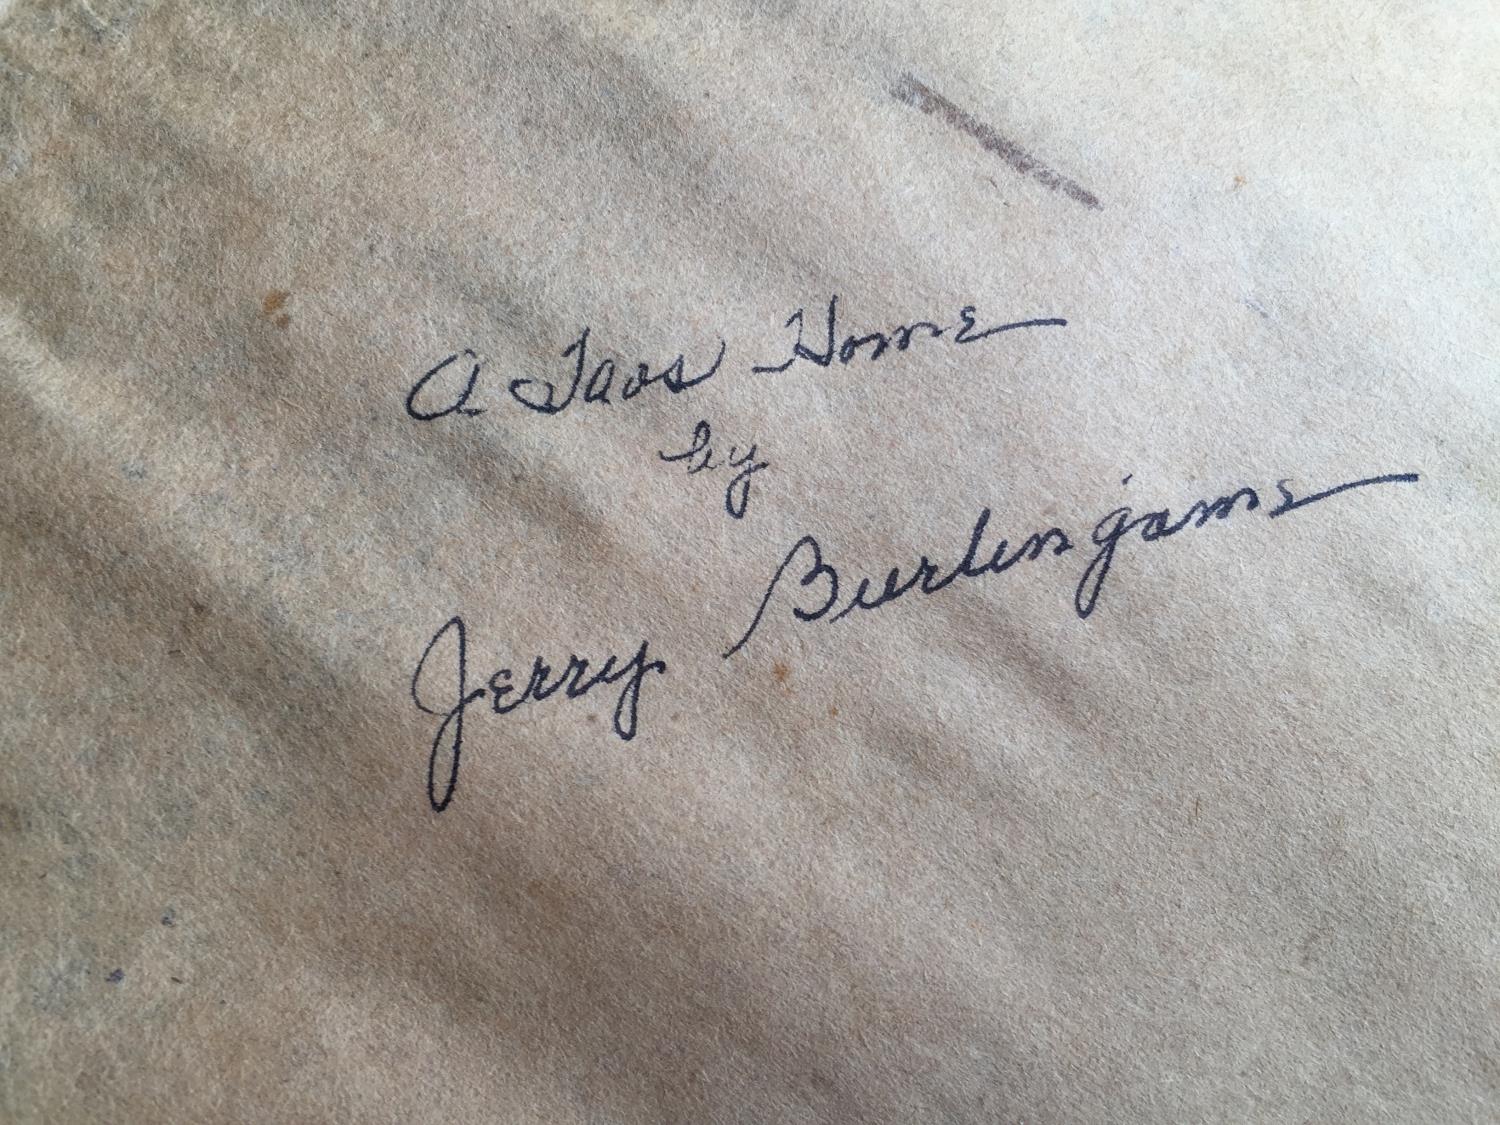 A Taos Home
by
Jerry Burlingame